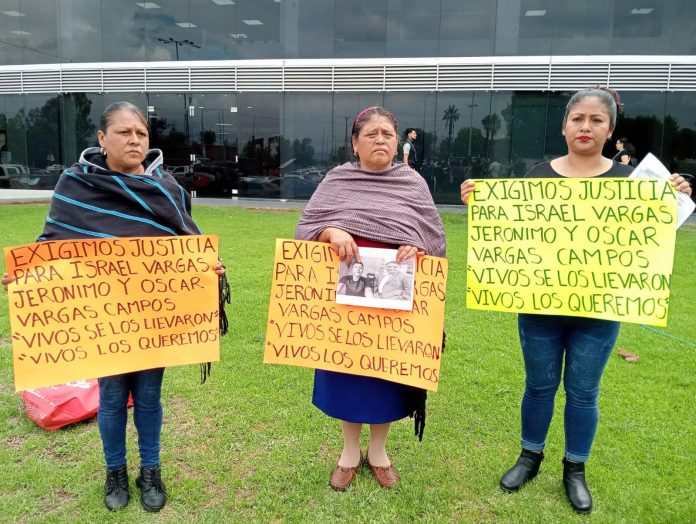 EXIGIMOS JUSTICIA
PARA ISRAEL VARGAS
JERONIMO Y OSCAR
VARGAS CAMPOS
"VIVOS SE LOS LLEVARON"
"VIVOS LOS QUEREMOS"
EXIGIMOS JUSTICIA
PARA IS VARGAS
JERONIM OSCAR
VARGAS CAMPOS
"VIVOS SE LOS LLEVARON"
"VIVOS LOS QUEREMOS"
EXIGIMOS JUSTICIA
PARA ISRAEL VARGAS
JERONIMO Y OSCAR
VARGAS CAMPOS
"VIVOS SE LOS LLEVARON
"VIVOS LOS QUEREMOS"